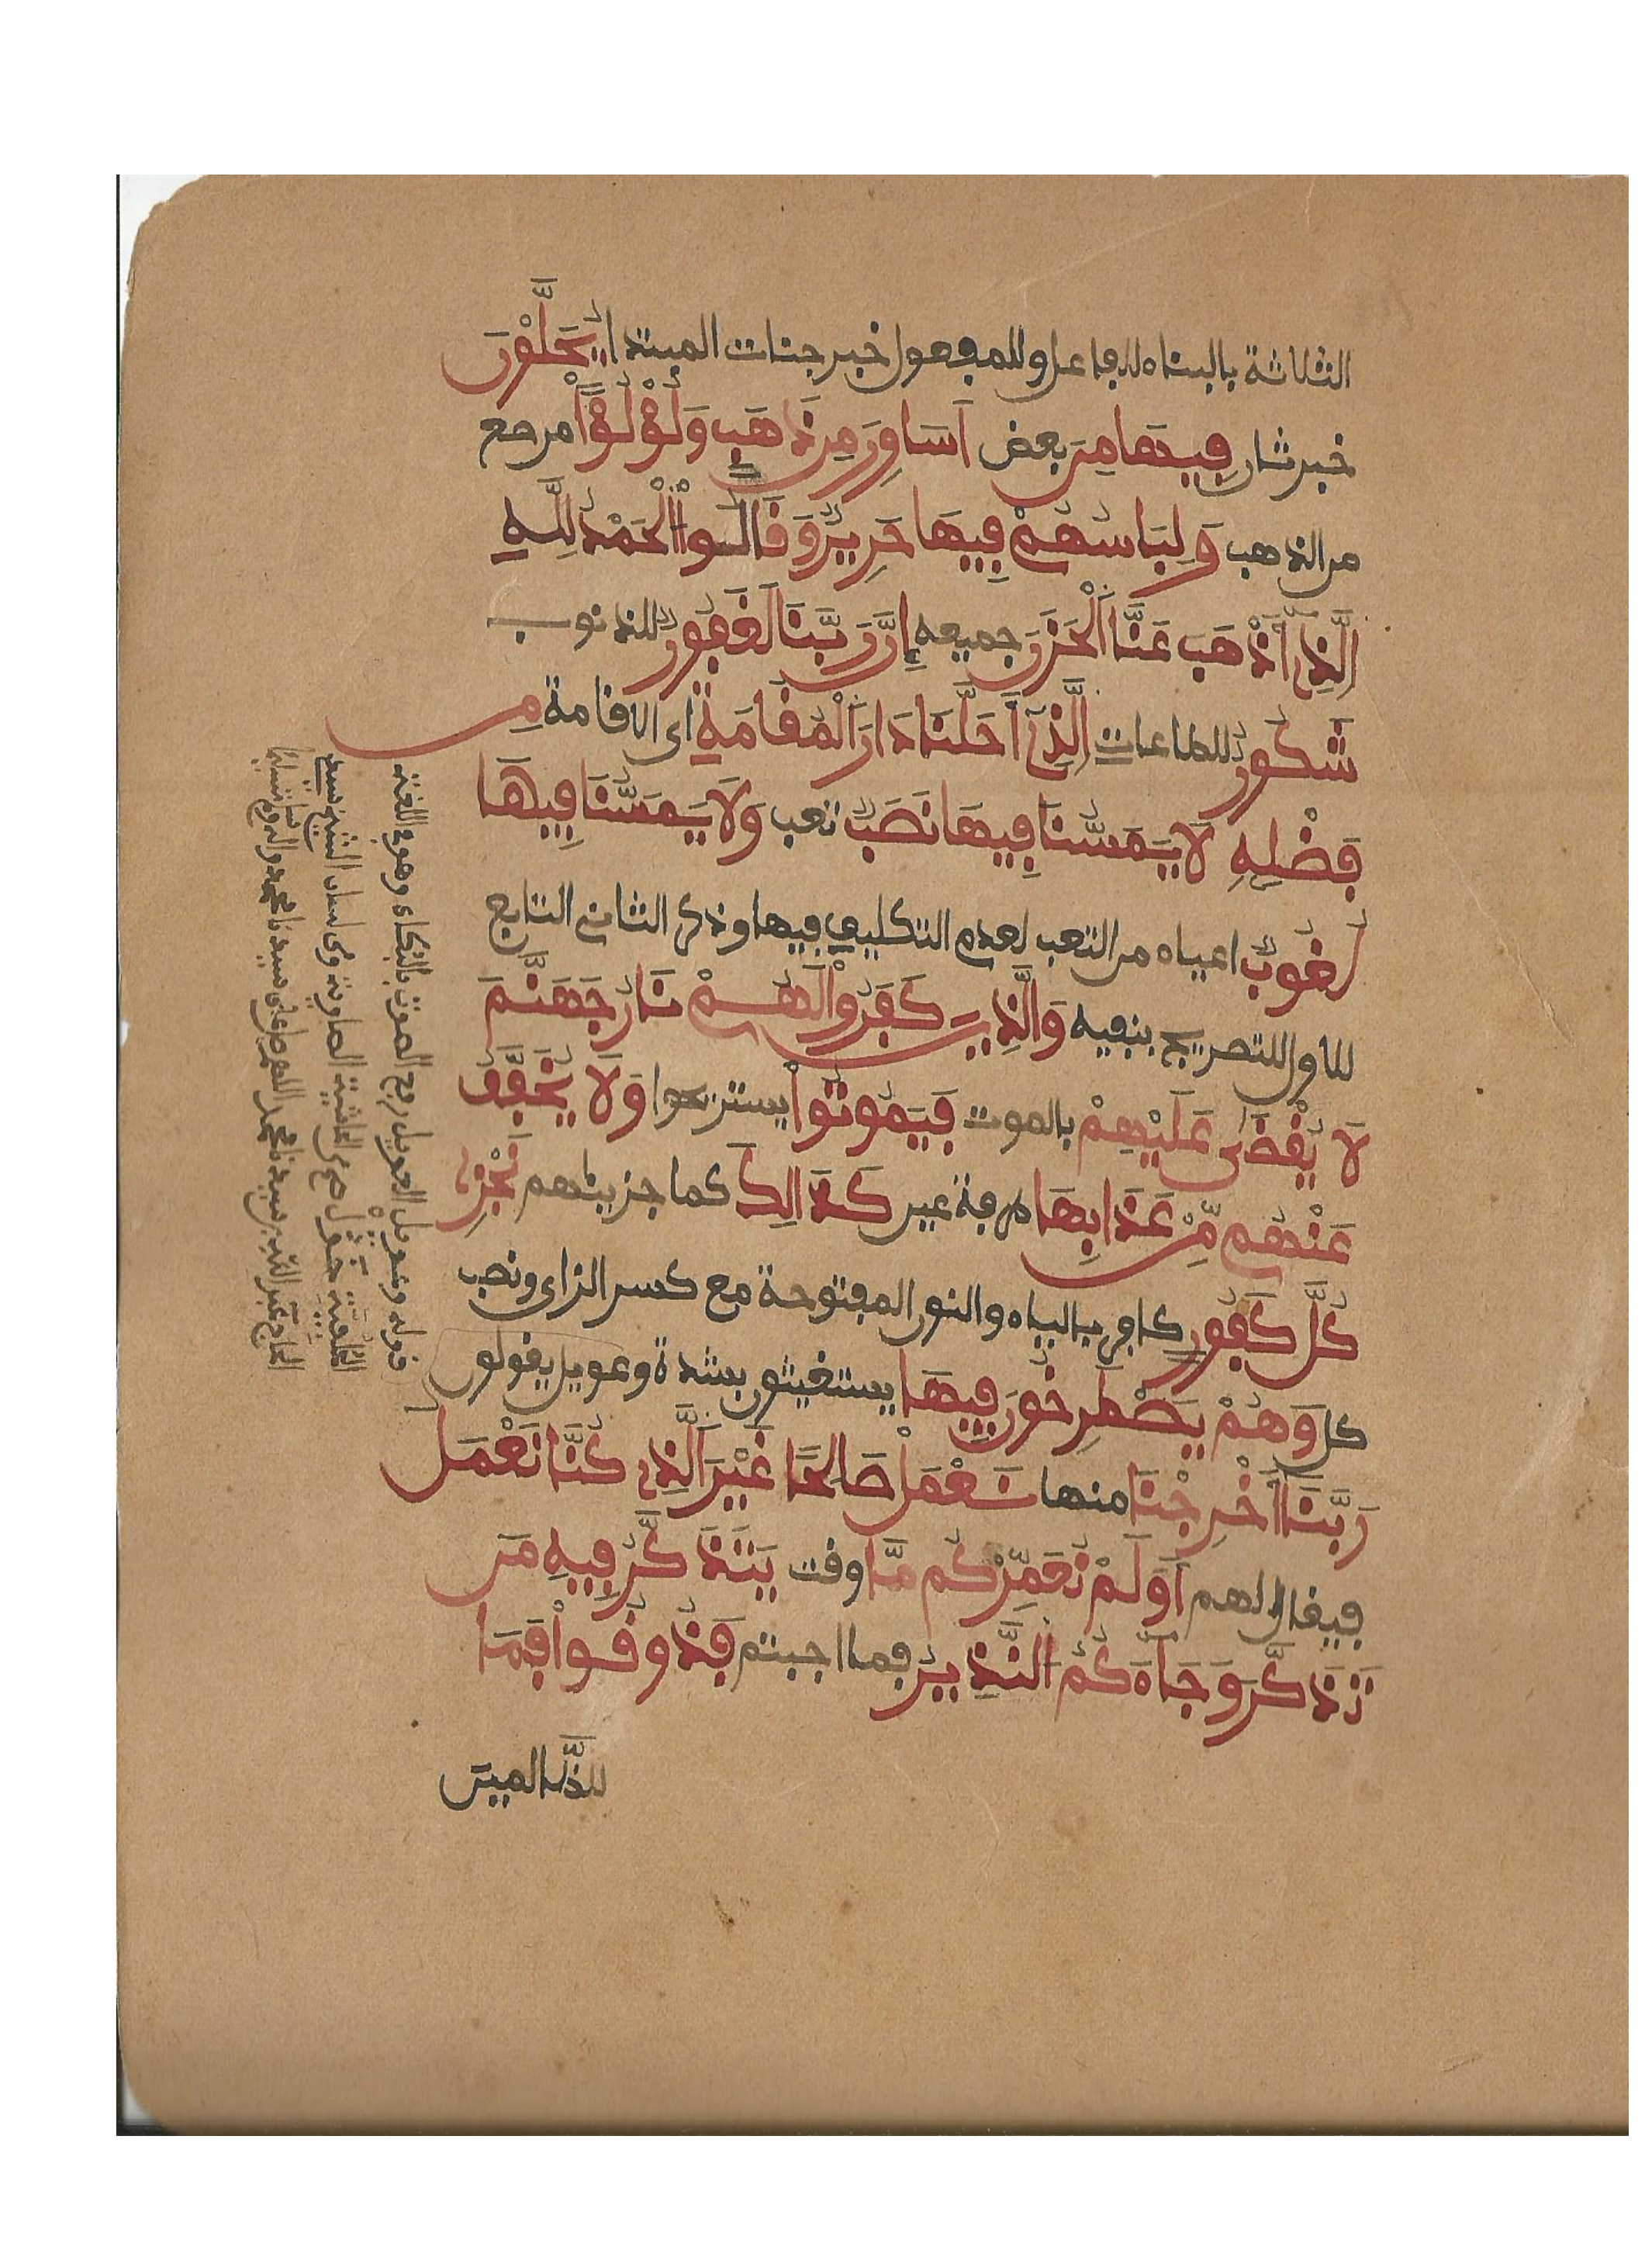 الثلاثة بالبناء للفاعل وللمفعول خبر جنات المبتدا يُحَلَّوْنَ
خبر ثان فِيهَا مِنَ بعض اَسَاوِرَ مِن ذَهَبٍ وَلُؤْلُؤًا مرصع
من الذهب وَلِبَاسُهُمْ فِيهَا حَرِيرٌ وَقَالُواْ الْحَمْدُ لِلَّهِ
اَلَّذِى أَذْهَبَ عَنَّا اَلْحَزَنَ جميعه إِنَّ رَبَّنَا لَغَفُورٌ للذنوب
شَكُورٌ للطاعات اِلَّذِى أَحَلَّنَا دَارَ اَلْمُقَامَةِ اى الاقامة مِن
فَضْلِهِ لَا يَمَسُّنَا فِيهَا نَصَبٌ تعب وَلَا يَمَسُّنَا فِيهَا
لُغُوبٌ اعياء من التعب لعدم التكليف فيها وذكر الثانى التابع
للاول للتصريح بنفيه وَالَّذِينَ كَفَرُواْ لَهُمْ نَارُ جَهَنَّمَ
لَا يُقْضَى عَلَيْهِمْ بالموت فَيَمُوتُواْ يستريحوا وَلَا يُخَفَّفُ
عَنْهُم مِّنْ عَذَابِهَا طرفة عين كَذَالِكَ كما جزيناهم نَجْزِى
كُلَّ كَفُورٍ كافر بالياء والنون المفتوحة مع كسر الزاى ونصب
كل وَهُمْ يَصْطَرِخُونَ فِيهَا يستغيثون بشدة وعويل يقولون
رَبَّنَا أَخْرِجْنَا منها نَعْمَلْ صَالِحًا غَيْرَ اَلَّذِى كُنَّا نَعْمَلُ
فيقال لهم أَوَلَمْ نُعَمِّرْكُم مَّا وقت يَتَذَكَّرُ فِيهِ مَن
تَذَكَّرَ وَجَاءَكُمُ اَلنَّذِيرُ فما اجبتم فَذُوقُواْ فَمَا
للظالمين
قوله وعويل العويل رفع الصوت بالبكاء وهو فى اللغة